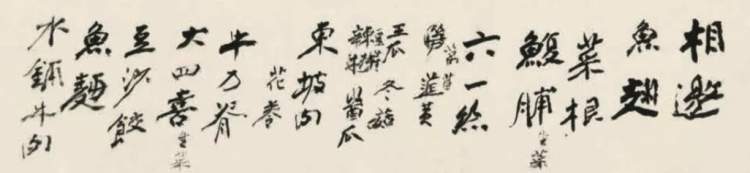 相邀
魚翅
菜根
鰒脯 生菜
六一絲
韮黃
王瓜 冬菇
辣椒 醬瓜
東坡肉
花卷
牛乃脊
大四喜 生菜
豆沙餃
魚麵
水鋪牛肉